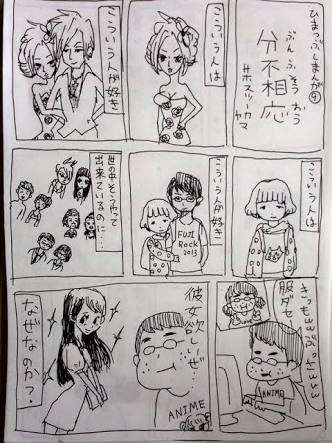 ひまつぶしまんが④
ぶんふそうおう
分不相応
#ホスツー
こういう人は
こういう人が好き
こういう人は
こういう人が好き
FUJI
Rock
2013
世の中そうやって
出来ているのに…
服ダセ
ANIME
彼女欲しいぜ…
ANIME
なぜなのか?